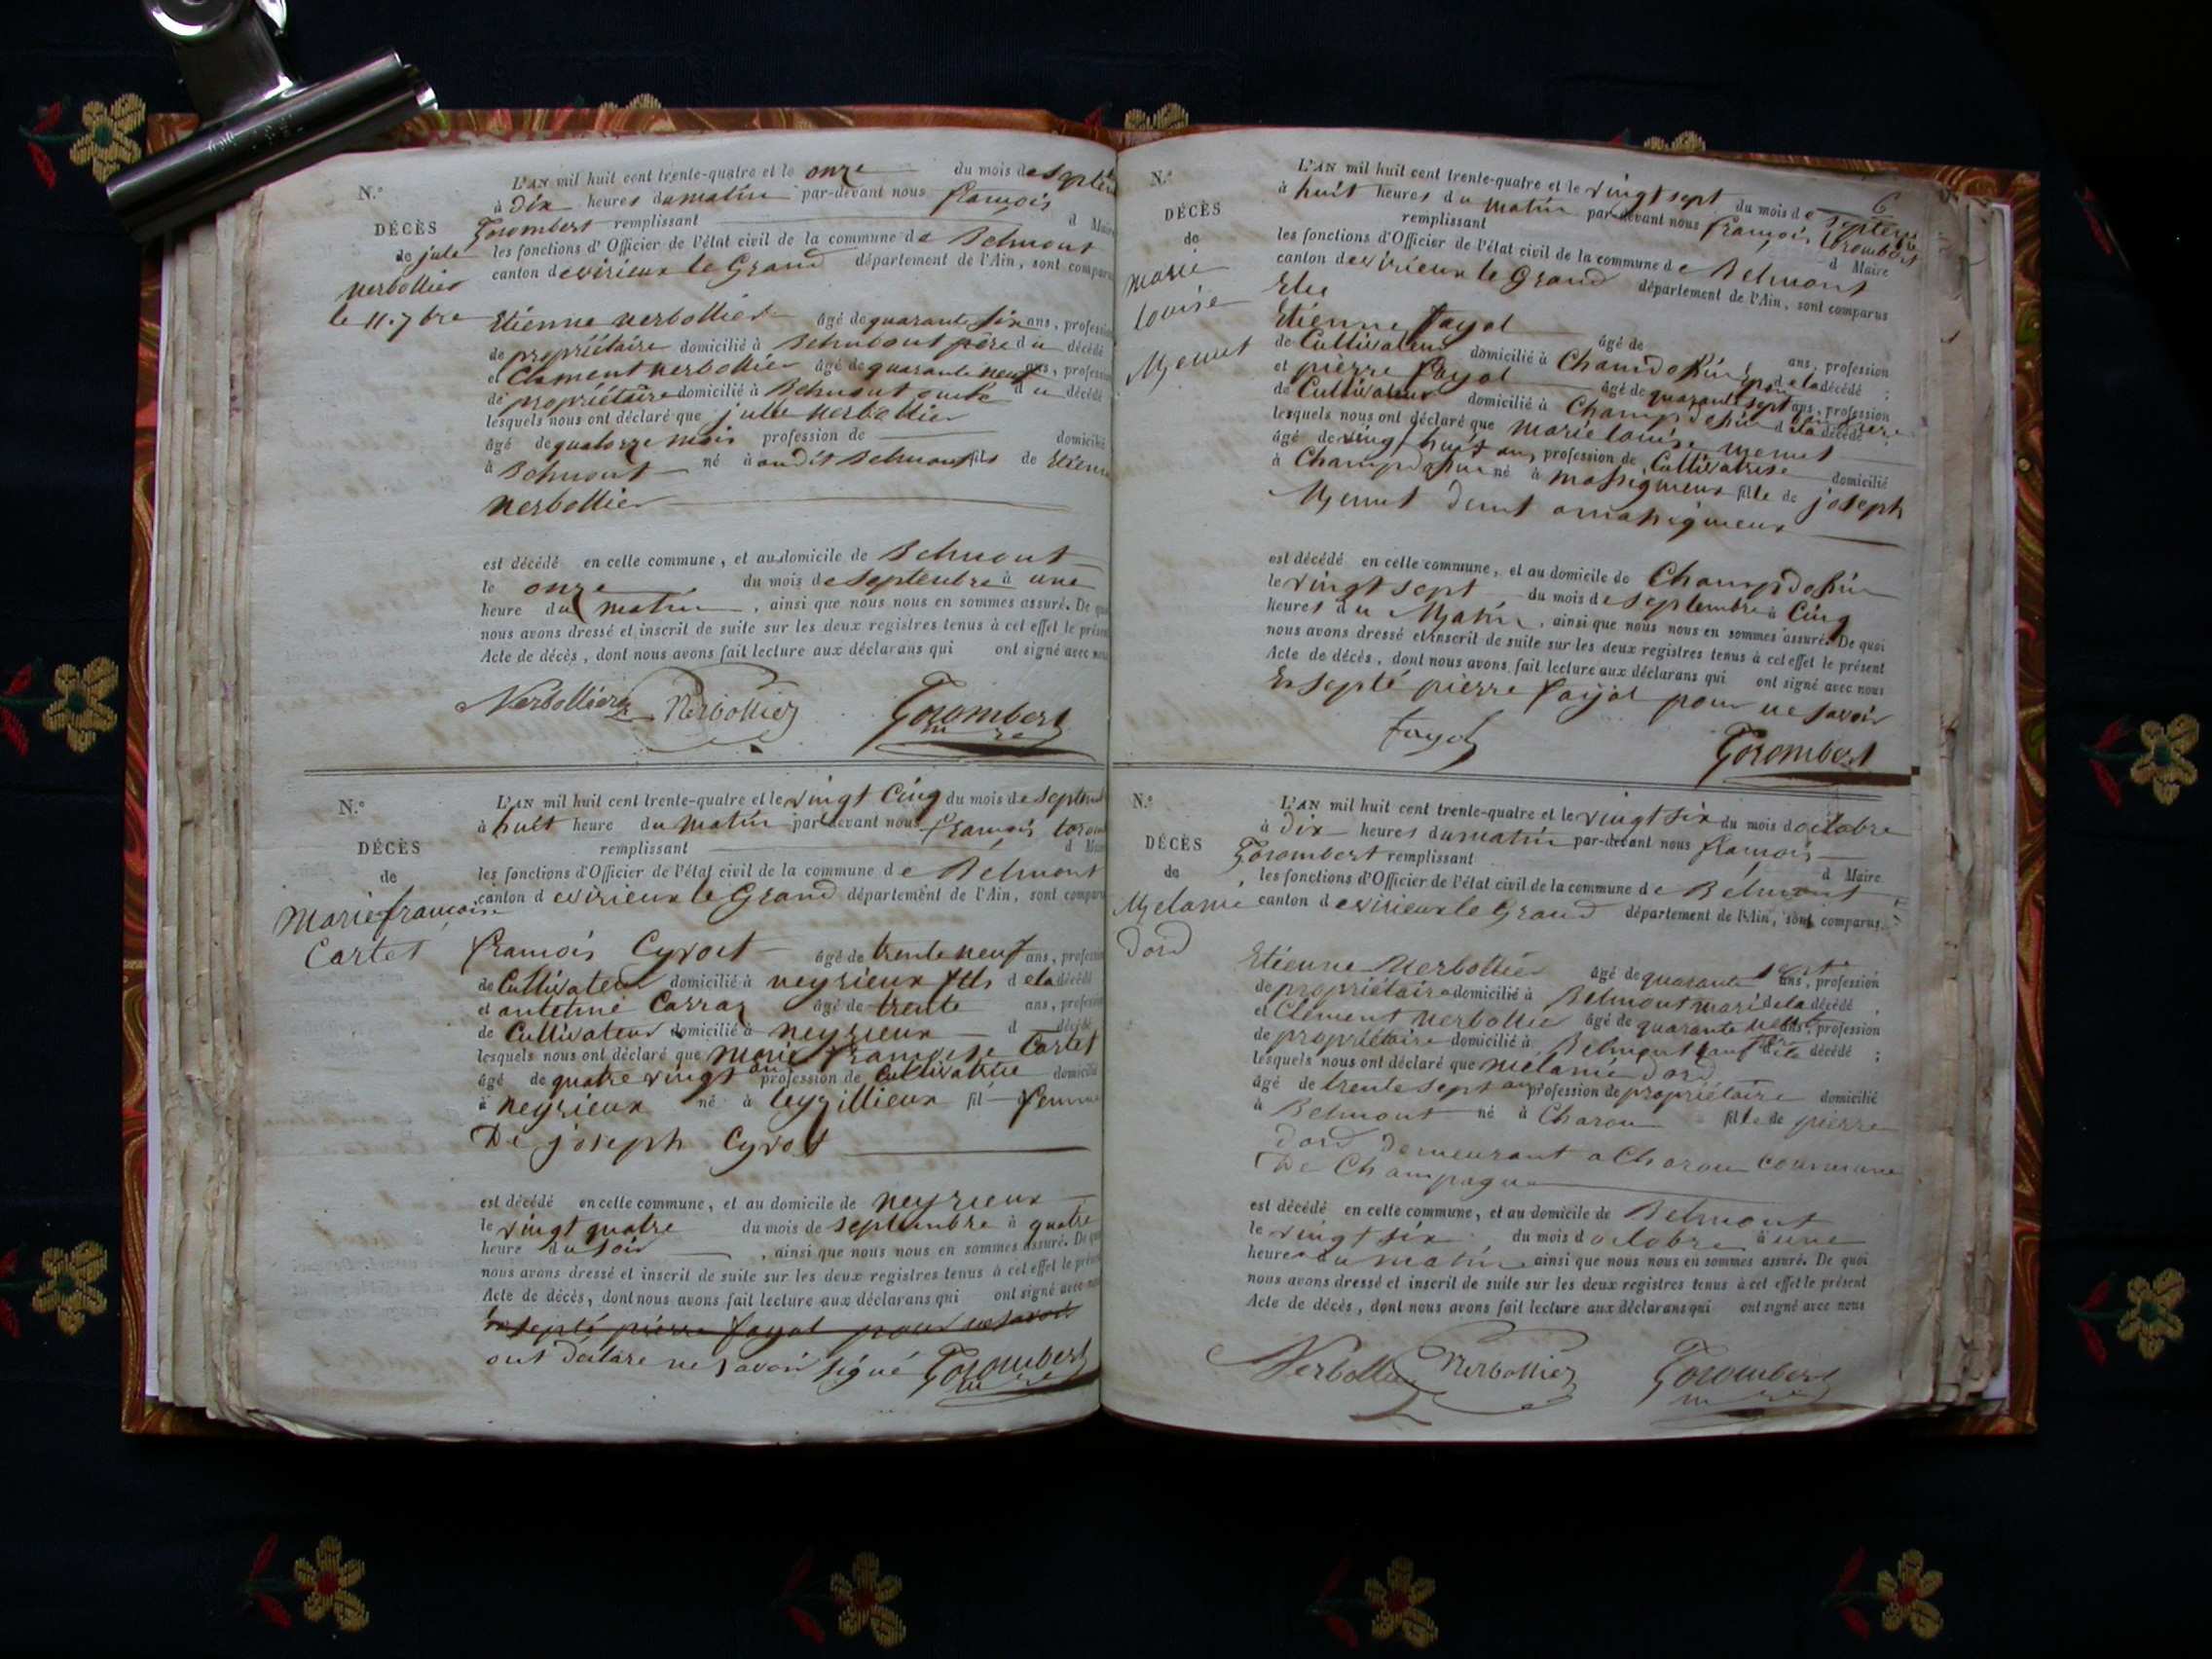 N.º
DÉCÈS
de jule
Nerbollier
le 11. 7bre
L'AN mil huit cent trente-quatre et le onze du mois de septem
à Dix heures du matin par-devant nous françois
Gorombert remplissant d Maire
les fonctions d'Officier de l'état civil de la commune de Belmont
canton de virieux le Grand département de l'Ain, sont comparus
Etienne Nerbollier âgé de quarante six ans, profession
de propriétaire domicilié à Belmont père du décédé
et Clément Nerbollier âgé de quarante neuf ans, profession
de propriétaire domicilié à Belmont oncle du décédé
lesquels nous ont déclaré que julle Nerbollier
âgé de quatorze mois profession de domicilié
à Belmont né à audit Belmont fils de Etienne
Nerbollier
est décédé en celle commune, et au domicile de Belmont
le onze du mois de septembre à une
heure du matin, ainsi que nous nous en sommes assuré. De quoi
nous avons dressé et inscrit de suite sur les deux registres tenus à cet effet le présent
Acte de décès, dont nous avons fait lecture aux déclarans qui ont signé avec nous
Nerbollier Nerbollier Gorombert
N.º
DÉCÈS
de
Marie françoise
Cartet
L'AN mil huit cent trente-quatre et le vingt Cinq du mois de septemb
à huit heure du matin par-devant nous françois Gorom
remplissant d Maire
les fonctions d'Officier de l'état civil de la commune de Belmont
canton de virieux le Grand département de l'Ain, sont comparus
françois Cyvoct âgé de trente neuf ans, profession
de Cultivateur domicilié à neyrieux fils de la décédé
et antelme Carraz âgé de trente ans, profession
de Cultivateur domicilié à neyrieux d décédé
lesquels nous ont déclaré que Marie françoise Cartet
âgé de quatre vingt an profession de Cultivatrise domicilié
à neyrieux né à leyzillieux fil femme
De joseph Cyvoct
est décédé en celle commune, et au domicile de neyrieux
le vingt quatre du mois de septembre à quatre
heure du soir, ainsi que nous nous en sommes assuré. De quoi
nous avons dressé et inscrit de suite sur les deux registres tenus à cet effet le présent
Acte de décès, dont nous avons fait lecture aux déclarans qui ont signé avec nous
Exsepté pierre fayol pour ne savoir
ont déclaré ne savoir signé Gorombert
6
N.º
DÉCÈS
de
Marie
louise
Memet
L'AN mil huit cent trente-quatre et le vingt sept du mois de septembre
à huit heures du matin par-devant nous françois Gorombert
remplissant d Maire
les fonctions d'Officier de l'état civil de la commune de Belmont
canton de virieux le Grand département de l'Ain, sont comparus
Etie
Etienne fayol âgé de ans, profession
de Cultivateur domicilié à Champdossin de la décédé ;
et pierre fayol âgé de quarante sept ans, profession
de Cultivateur domicilié à Champdossin de la décédé ;
lesquels nous ont déclaré que Marie louise Memet
âgé de vingt huit ans profession de Cultivatrise domicilié
à Champdossin né à Massigneux fille de joseph
Memet dem.t a massigneux
est décédé en celle commune, et au domicile de Champdossin
le vingt sept du mois de septembre à Cinq
heures du Matin, ainsi que nous nous en sommes assuré. De quoi
nous avons dressé et inscrit de suite sur les deux registres tenus à cet effet le présent
Acte de décès, dont nous avons fait lecture aux déclarans qui ont signé avec nous
Exsepté pierre fayol pour ne savoir
fayol Gorombert
N.º
DÉCÈS
de
Melanie
Dord
L'AN mil huit cent trente-quatre et le vingt six du mois d octobre
à Dix heures du matin par-devant nous françois
Gorombert remplissant d Maire
les fonctions d'Officier de l'état civil de la commune de Belmont
canton de virieux le Grand département de l'Ain, sont comparus
Etienne Nerbollier âgé de quarante sept ans, profession
de propriétaire domicilié à Belmont mari de la décédé ,
et Clément Nerbollier âgé de quarante neuf ans, profession
de propriétaire domicilié à Belmont de la décédé ;
lesquels nous ont déclaré que Melanie Dord
âgé de trente sept ans profession de propriétaire domicilié
à Belmont né à Charon fille de pierre
Dord demeurant a Charon commune
De Champagne
est décédé en celle commune, et au domicile de Belmont
le vingt six du mois d octobre à une
heure du matin ainsi que nous nous en sommes assuré. De quoi
nous avons dressé et inscrit de suite sur les deux registres tenus à cet effet le présent
Acte de décès, dont nous avons fait lecture aux déclarans qui ont signé avec nous
Nerbollier Nerbollier Gorombert